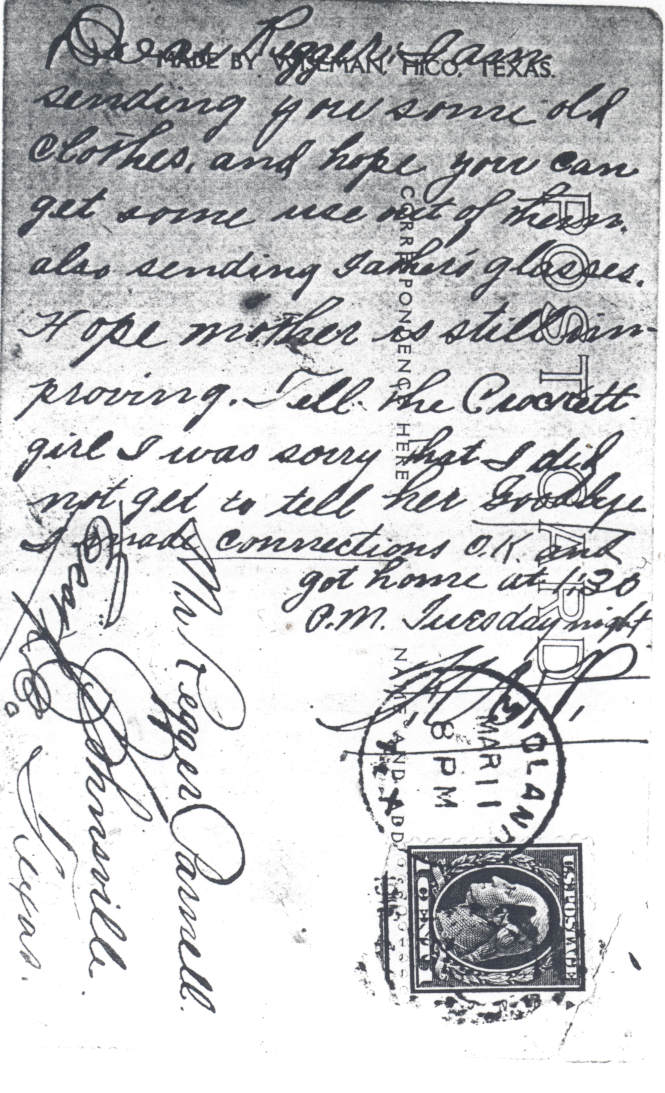 Dear Pegger: I am
MADE BY WISEMAN, HICO, TEXAS.
sending you some old
clothes, and hope you can
get some use out of them.
also sending Father's glasses.
Hope mother is still im-
proving. Tell the Crockett
girl I was sorry that I did
not get to tell her Goodbye
I made connections O.K. and
got home at 1:30
P.M. Tuesday night
POST CARD
CORRESPONDENCE HERE
NAME AND ADDRESS HERE
MIDLAND
TEX
MAR 11
8 PM
U.S. POSTAGE
1 CENT 1
Mr Pegger Parnell.
Johnsville
Texas.